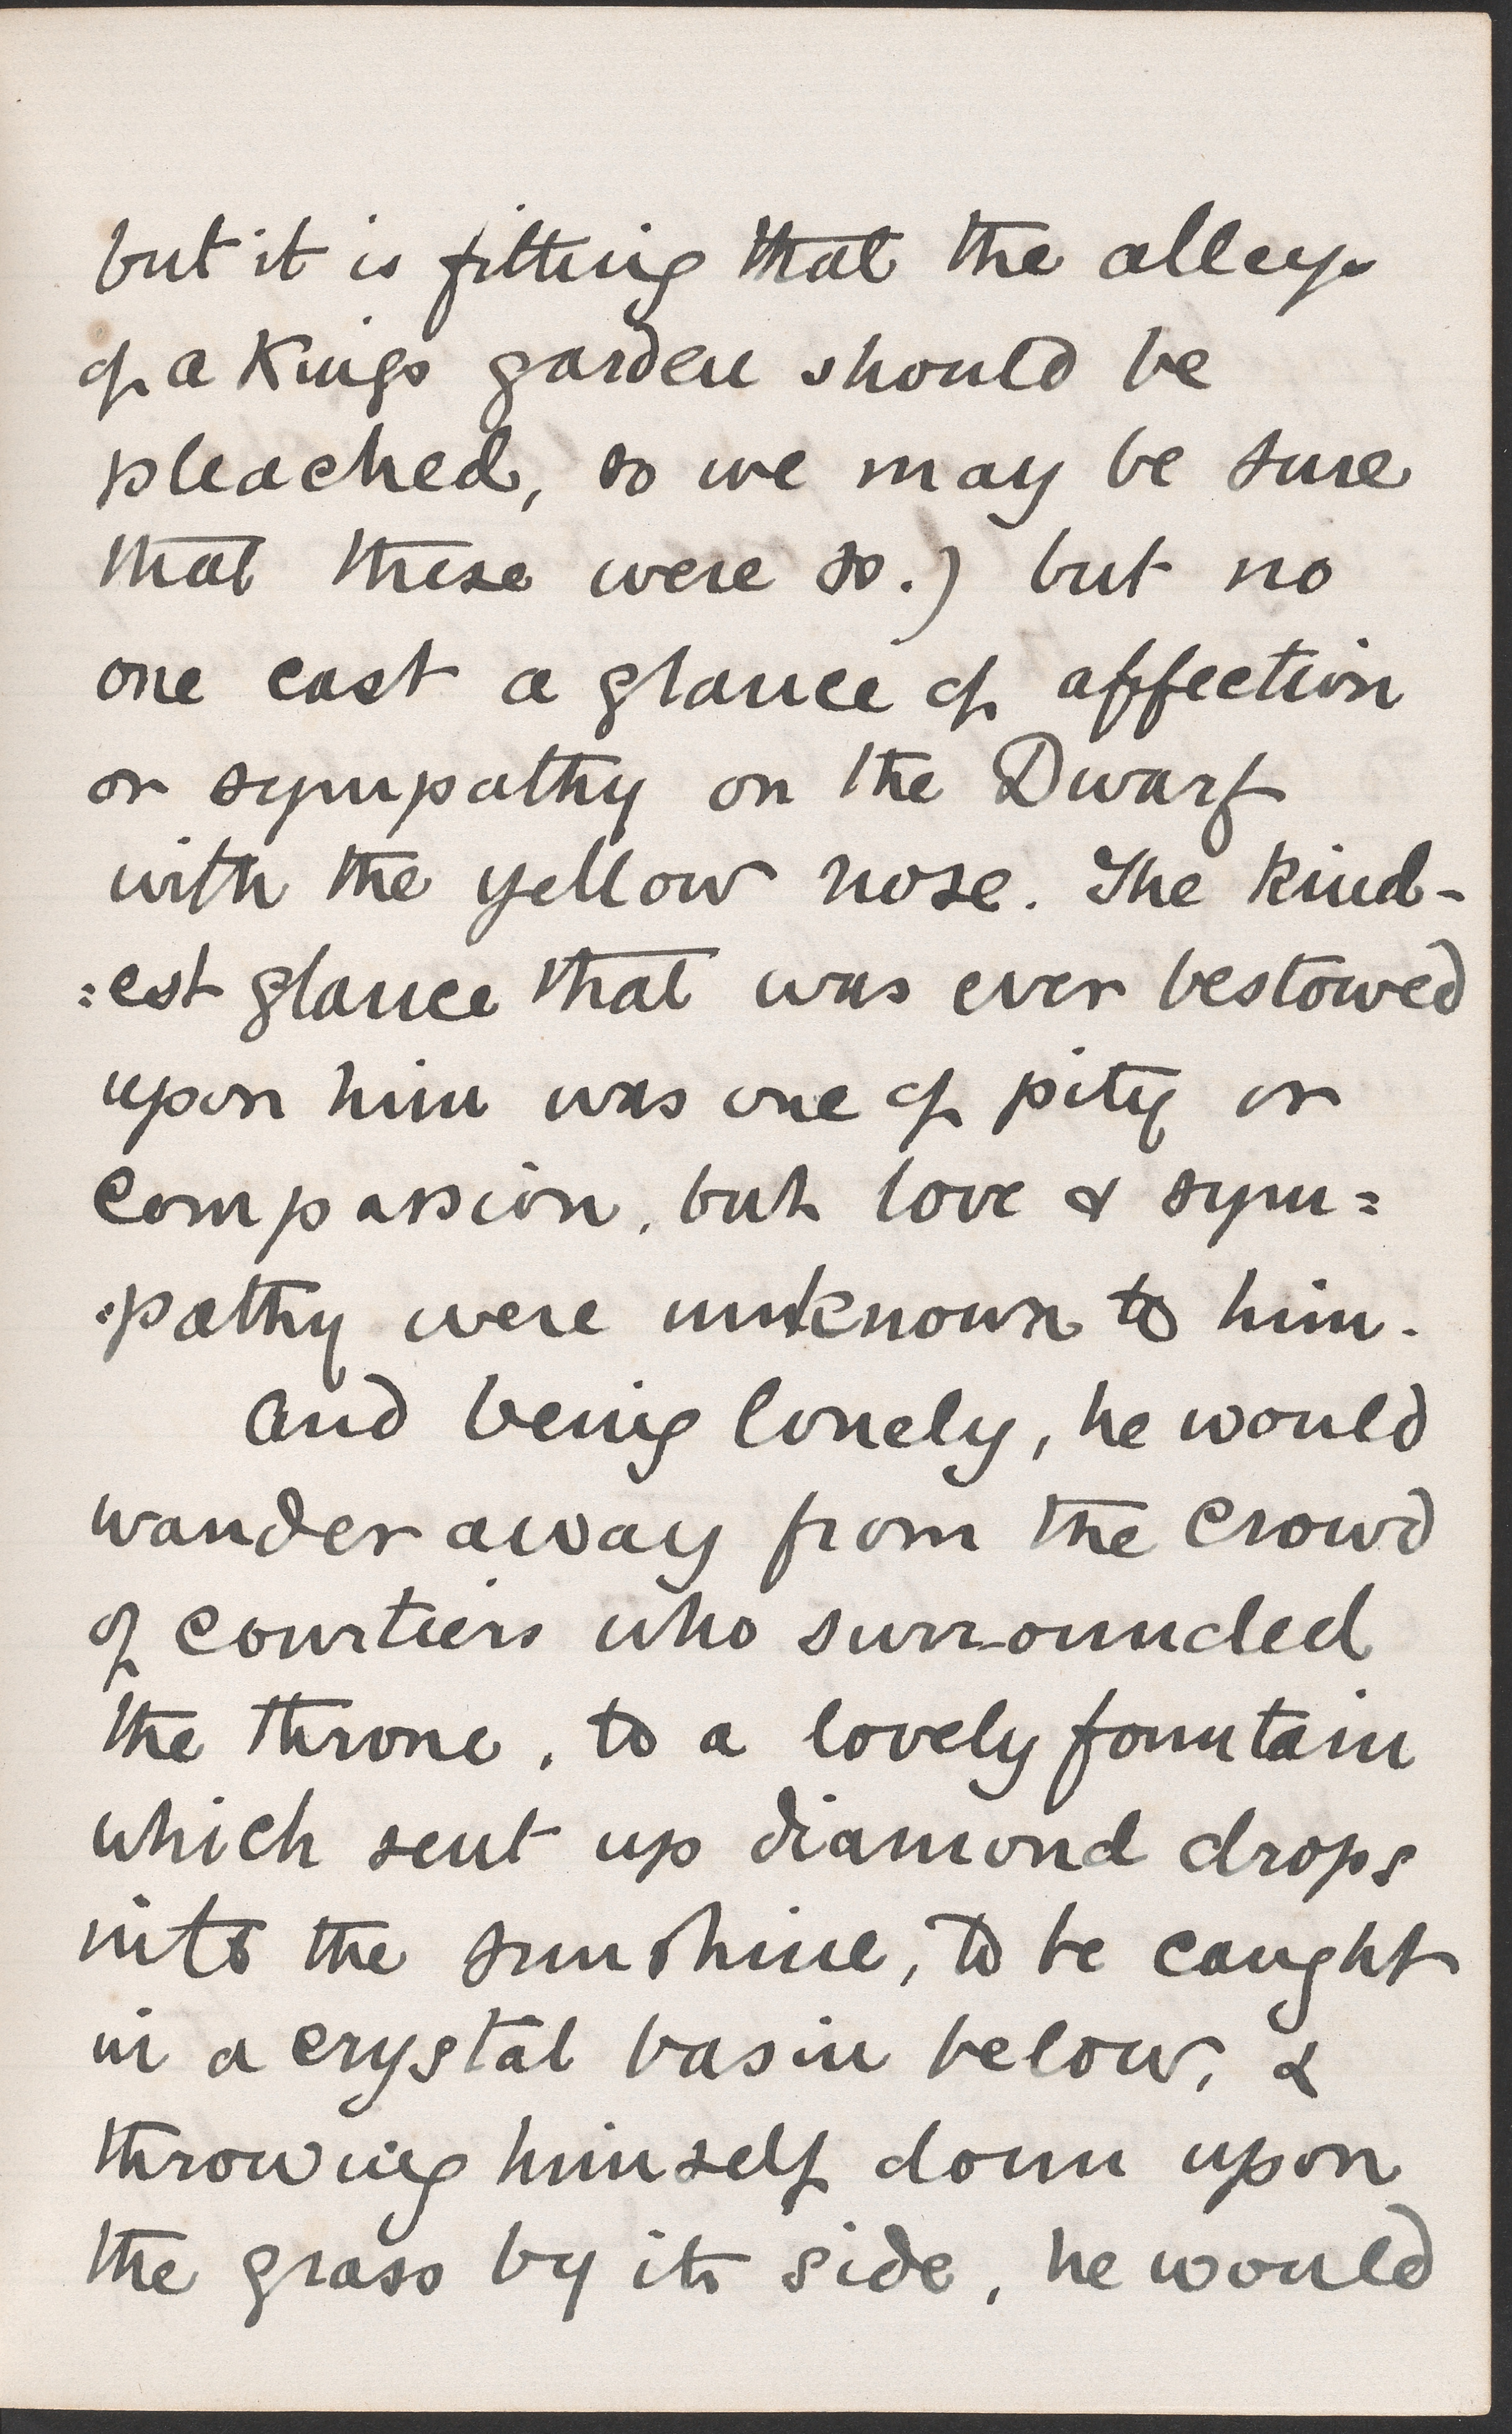 but it is fitting that the alleys
of a Kings garden should be
pleached, so we may be sure
that these were so.) but no
one cast a glance of affection
or sympathy on the Dwarf
with the yellow nose. The kind-
:est glance that was ever bestowed
upon him was one of pity or
compassion, but love & sym=
:pathy were unknown to him.
And being lonely, he would
wander away from the crowd
of courtiers who surrounded
the throne, to a lovely fountain
which sent up diamond drops
into the sunshine, to be caught
in a crystal basin below, &
throwing himself down upon
the grass by its side, he would